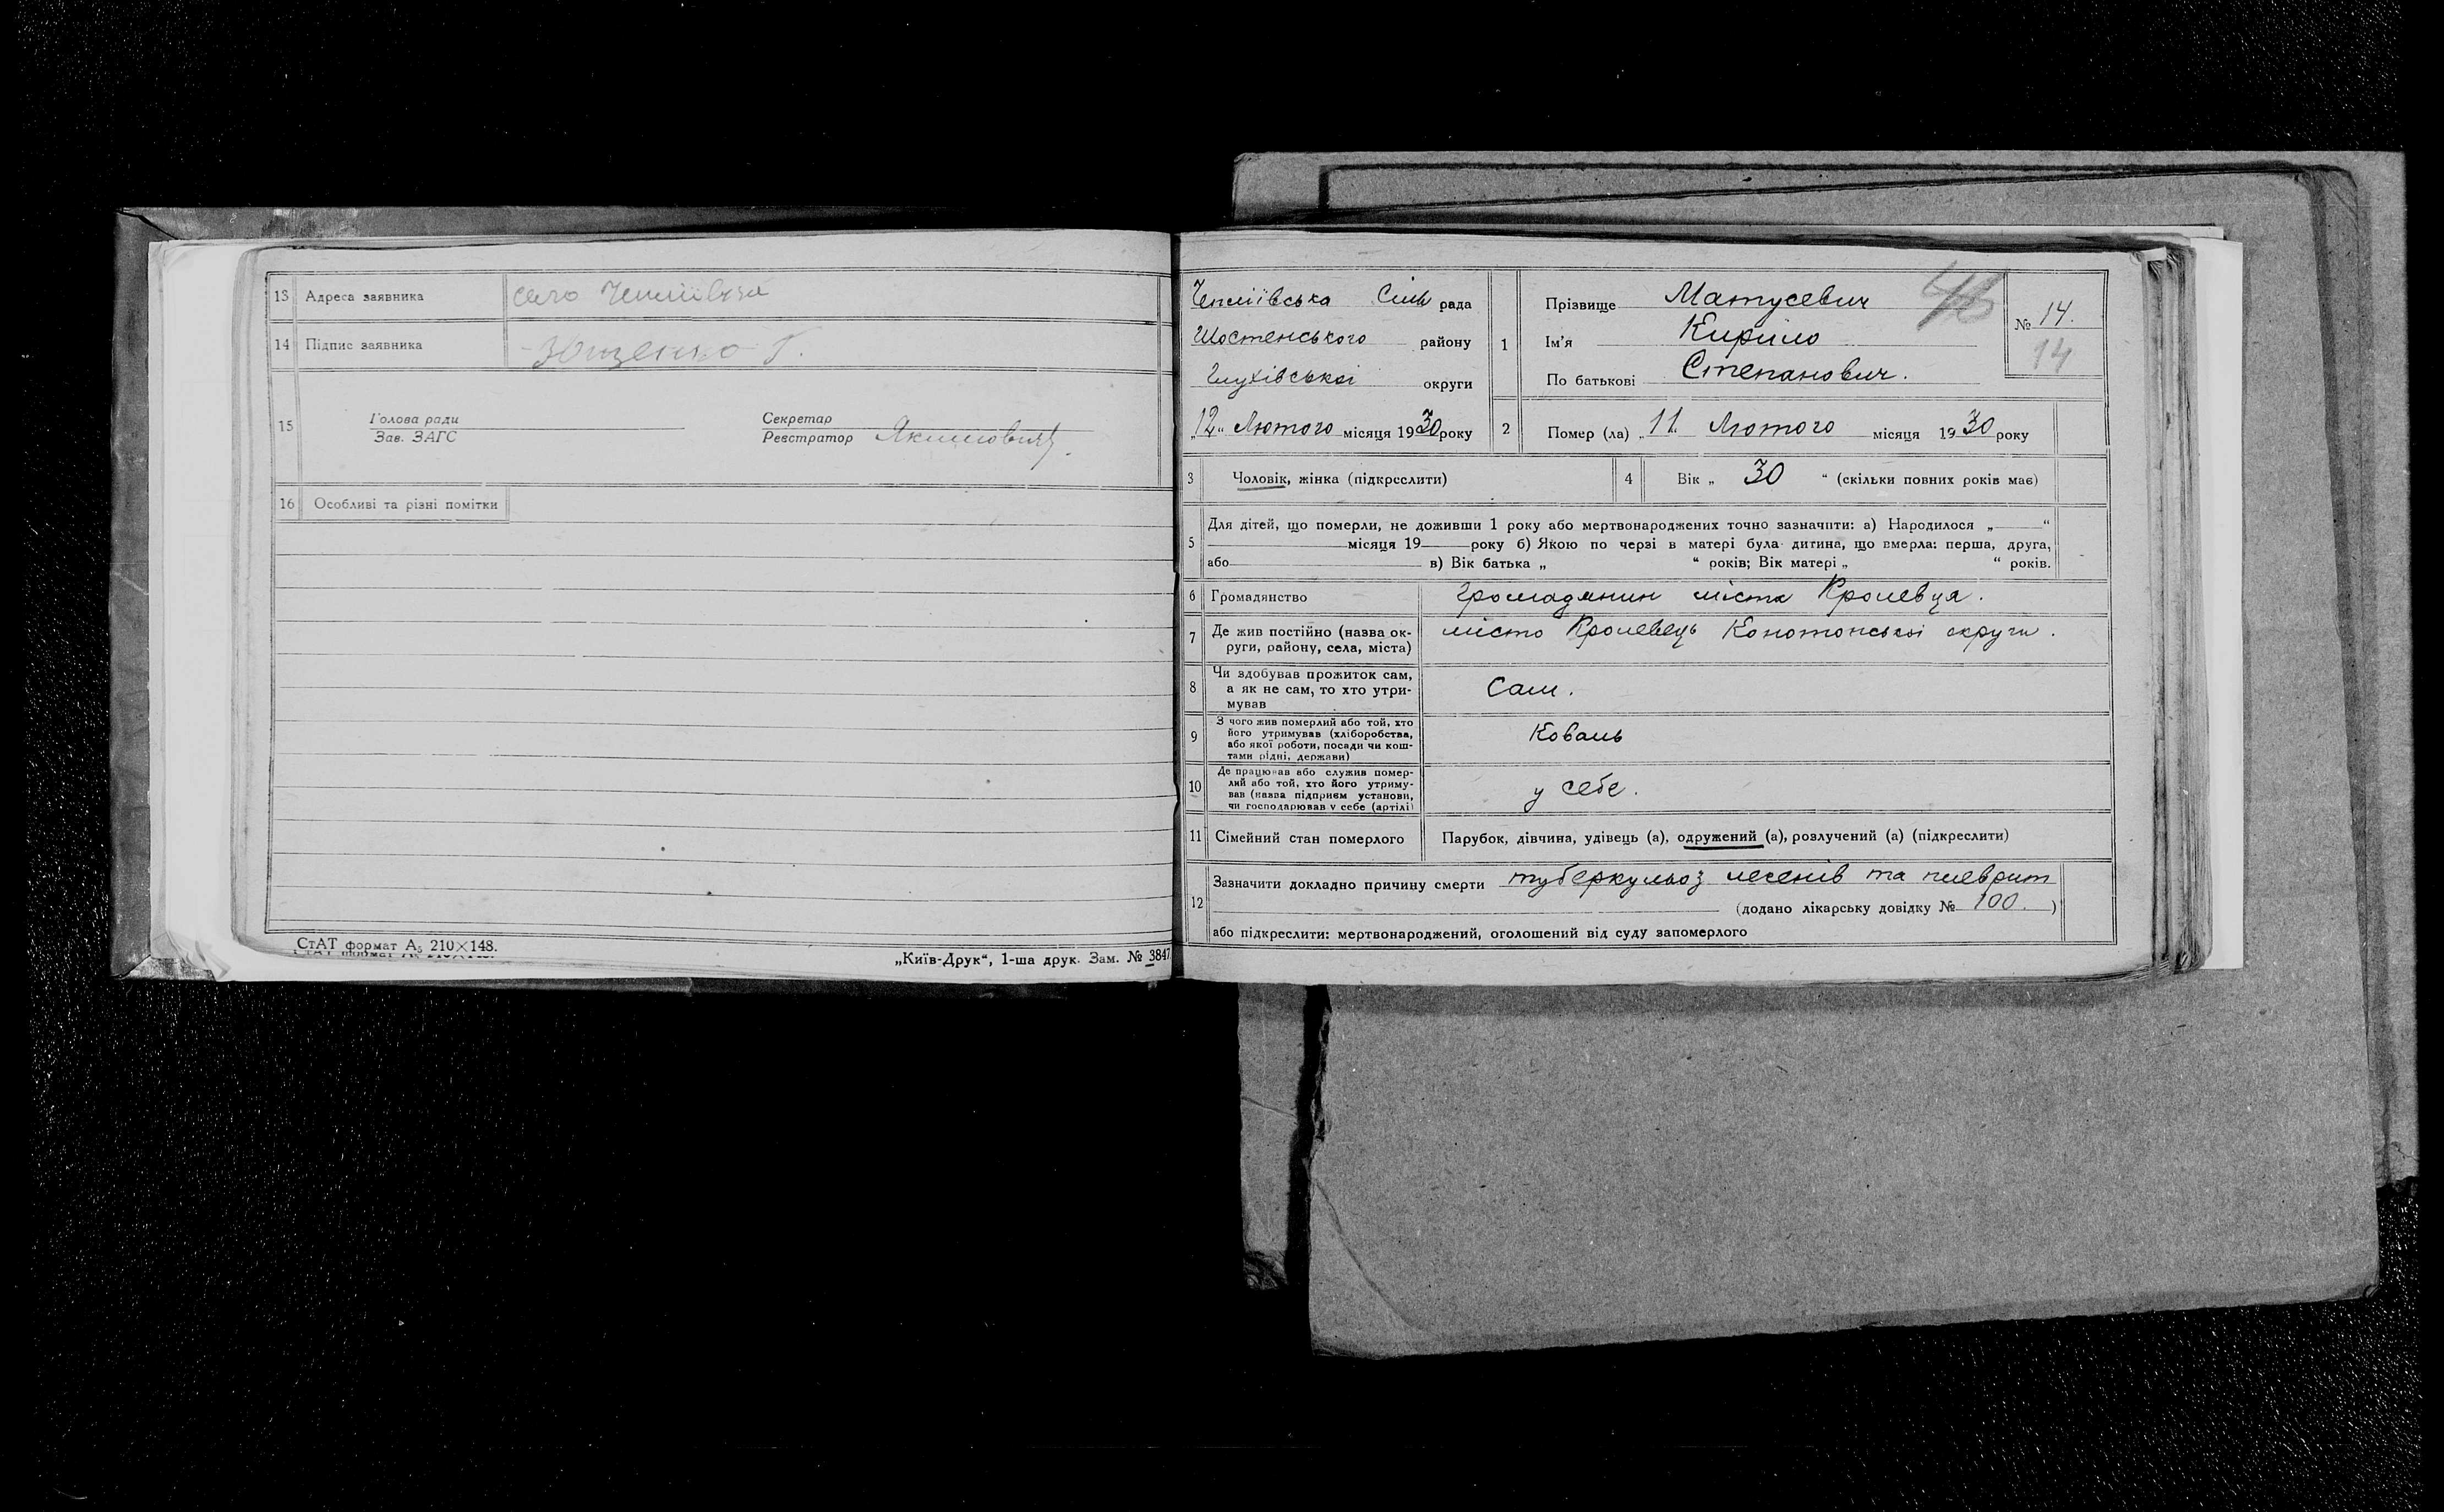 13 Адреса заявника село Чепліївка
14 Підпис заявника Ющенко Г.
15 Голова ради
Зав. ЗАГС
Секретар
Реєстратор Якимович
16 Особливі та різні помітки
СтАТ формат А₅ 210×148.
„Київ-Друк“, 1-ша друк. Зам. № 3847
Чепліївська Сіль рада
Шостенського району
Глухівської округи
„12“ Лютого місяця 1930 року
1 Прізвище Матусевич
Ім'я Кирило
По батькові Степанович.
№ 14.
14
2 Помер (ла) „11 Лютого місяця 1930 року
3 Чоловік, жінка (підкреслити)
4 Вік „ 30 “ (скільки повних років має)
5 Для дітей, що померли, не доживши 1 року або мертвонароджених точно зазначити: а) Народилося „ “
місяця 19 року б) Якою по черзі в матері була дитина, що вмерла: перша, друга,
або в) Вік батька „ “ років; Вік матері „ “ років.
6 Громадянство громадянин міста Кролевця.
7 Де жив постійно (назва ок-
руги, району, села, міста)
місто Кролевець Конотопської округи.
8 Чи здобував прожиток сам,
а як не сам, то хто утри-
мував
Сам.
9 З чого жив померлий або той, хто
його утримував (хліборобства,
або якої роботи, посади чи кош-
тами рідні, держави)
Коваль
10 Де працював або служив помер-
лий або той, хто його утриму-
вав (назва підприєм установи,
чи господарював у себе (артілі)
у себе.
11 Сімейний стан померлого Парубок, дівчина, удівець (а), одружений (а), розлучений (а) (підкреслити)
12 Зазначити докладно причину смерти туберкульоз легенів та плеврит
(додано лікарську довідку № 100. )
або підкреслити: мертвонароджений, оголошений від суду запомерлого